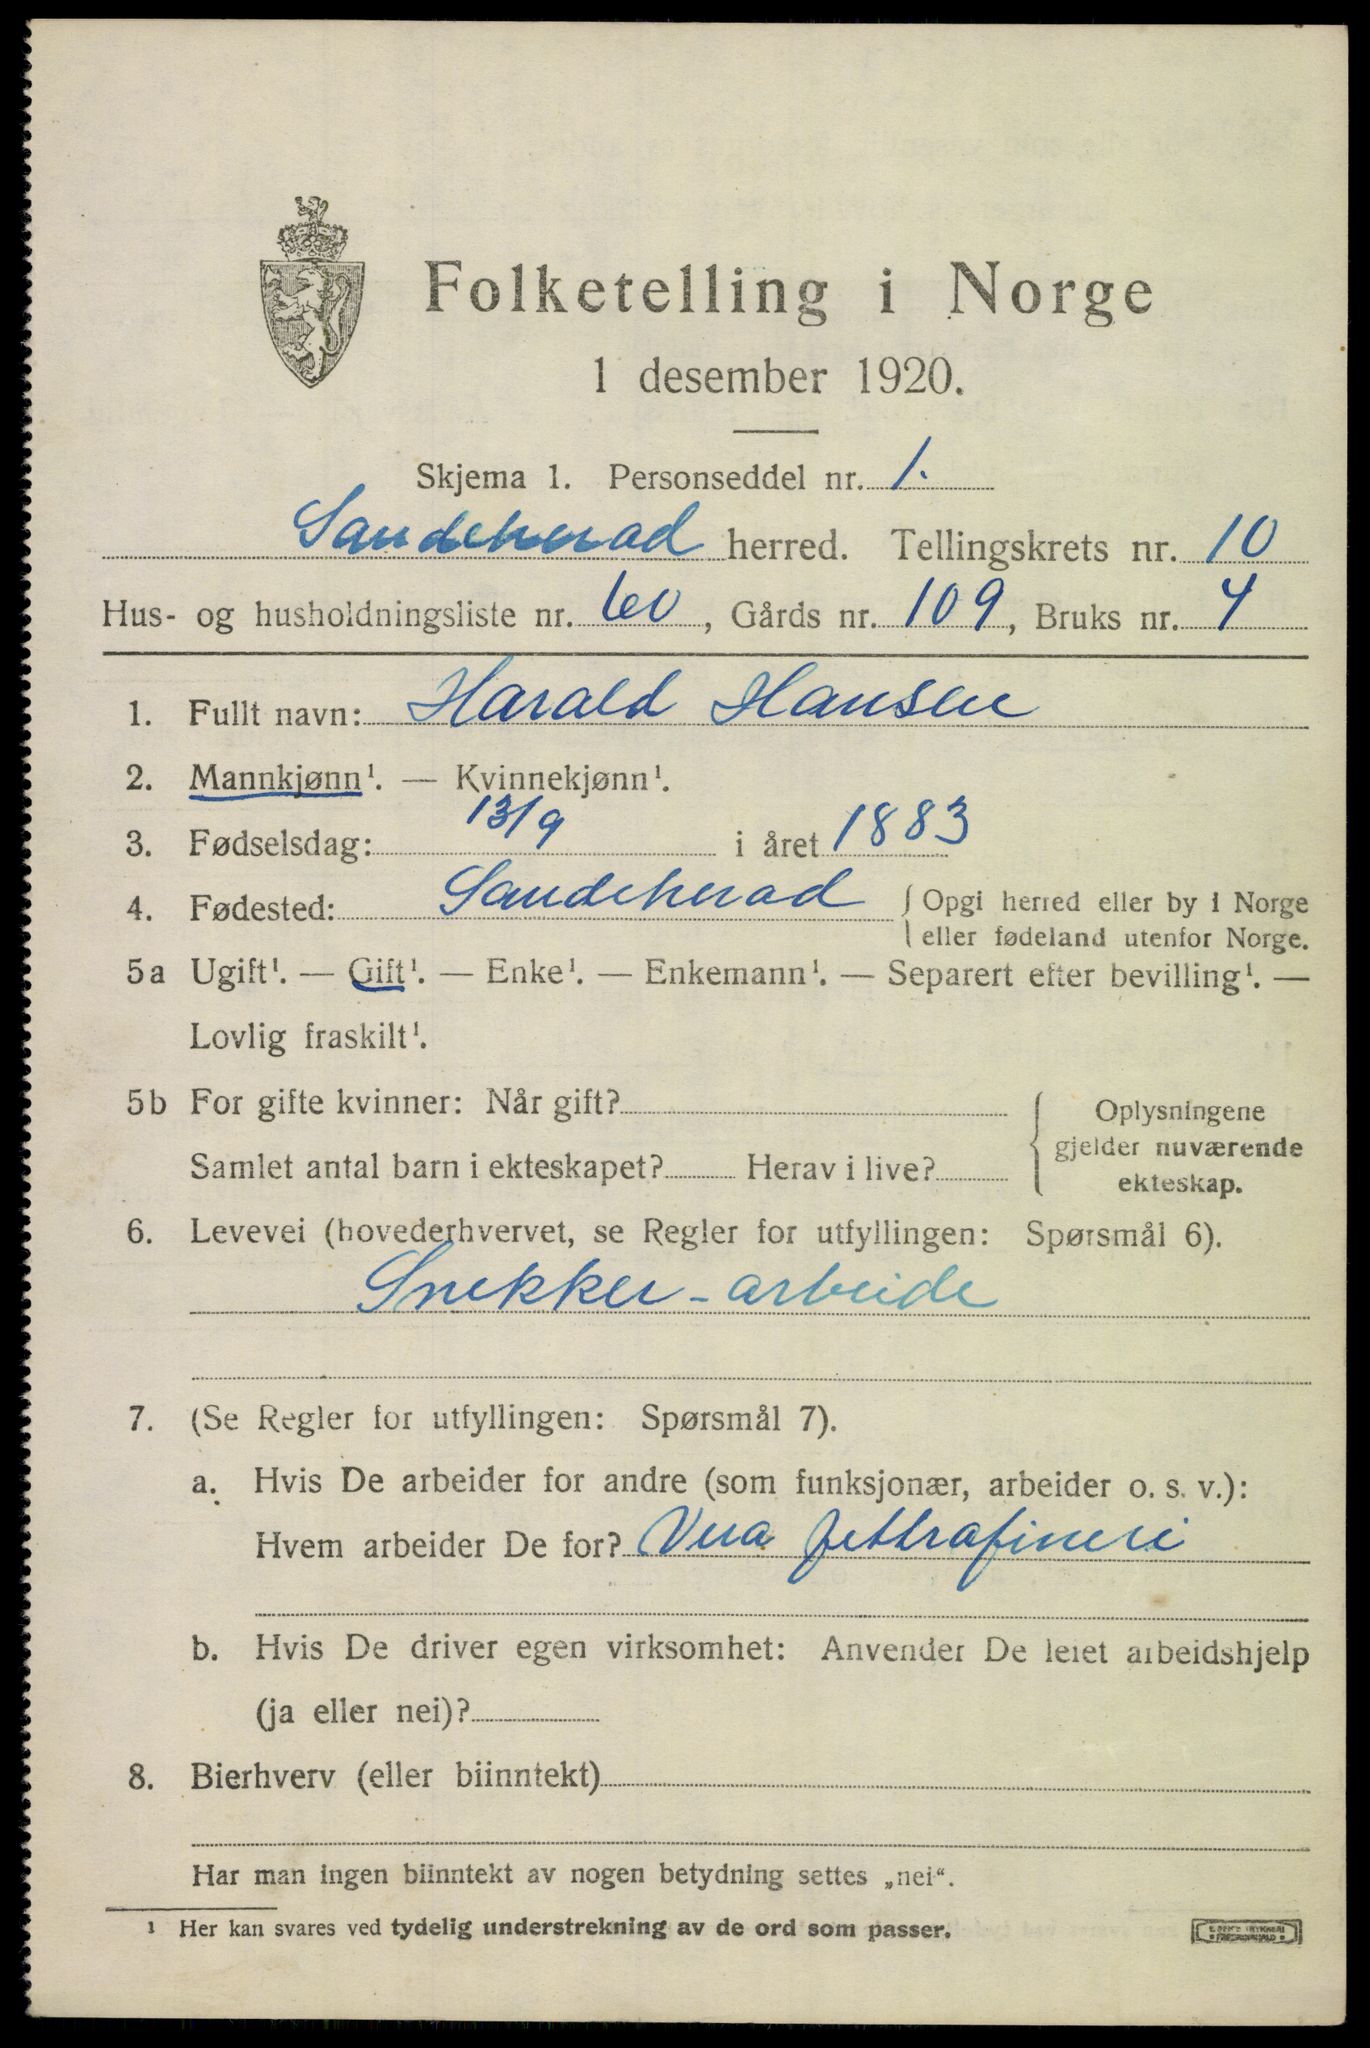 Folketelling i Norge
1 desember 1920.
Skjema 1. Personseddel nr. 1.
Sandeherad herred. Tellingskrets nr. 10
Hus- og husholdningsliste nr. 60, Gårds nr. 109, Bruks nr. 4
1. Fullt navn: Harald Hansen
2. Mannkjønn¹. — Kvinnekjønn¹.
3. Fødselsdag: 13/9 i året 1883
4. Fødested: Sandeherad { Opgi herred eller by i Norge
eller fødeland utenfor Norge.
5a Ugift¹. — Gift¹. — Enke¹. — Enkemann¹. — Separert efter bevilling¹. —
Lovlig fraskilt¹.
5b For gifte kvinner: Når gift?
Samlet antal barn i ekteskapet? Herav i live?
{ Oplysningene
gjelder nuværende
ekteskap.
6. Levevei (hovederhvervet, se Regler for utfyllingen: Spørsmål 6).
Snekker-arbeide
7. (Se Regler for utfyllingen: Spørsmål 7).
a. Hvis De arbeider for andre (som funksjonær, arbeider o. s. v.):
Hvem arbeider De for? Vera fettrafineri
b. Hvis De driver egen virksomhet: Anvender De leiet arbeidshjelp
(ja eller nei)?
8. Bierhverv (eller biinntekt)
Har man ingen biinntekt av nogen betydning settes „nei“.
¹ Her kan svares ved tydelig understrekning av de ord som passer.